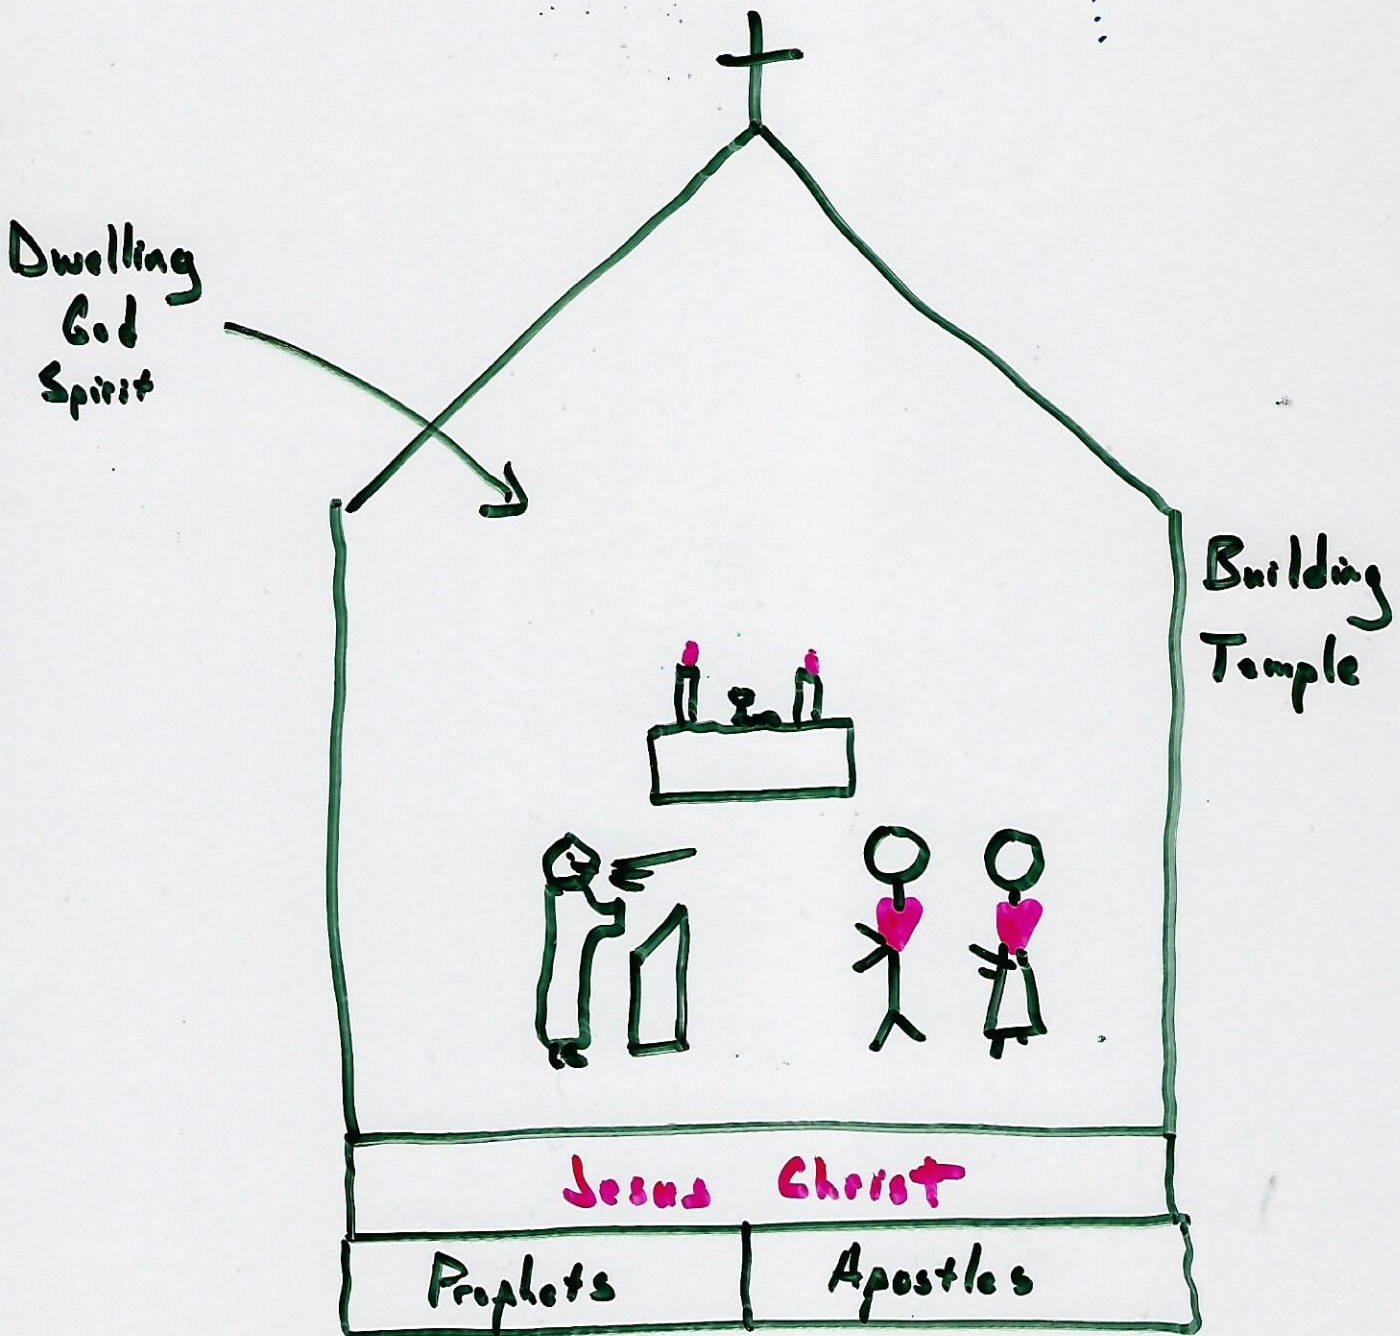 Dwelling
God
Spirit
Building
Temple
Jesus Christ
Prophets
Apostles